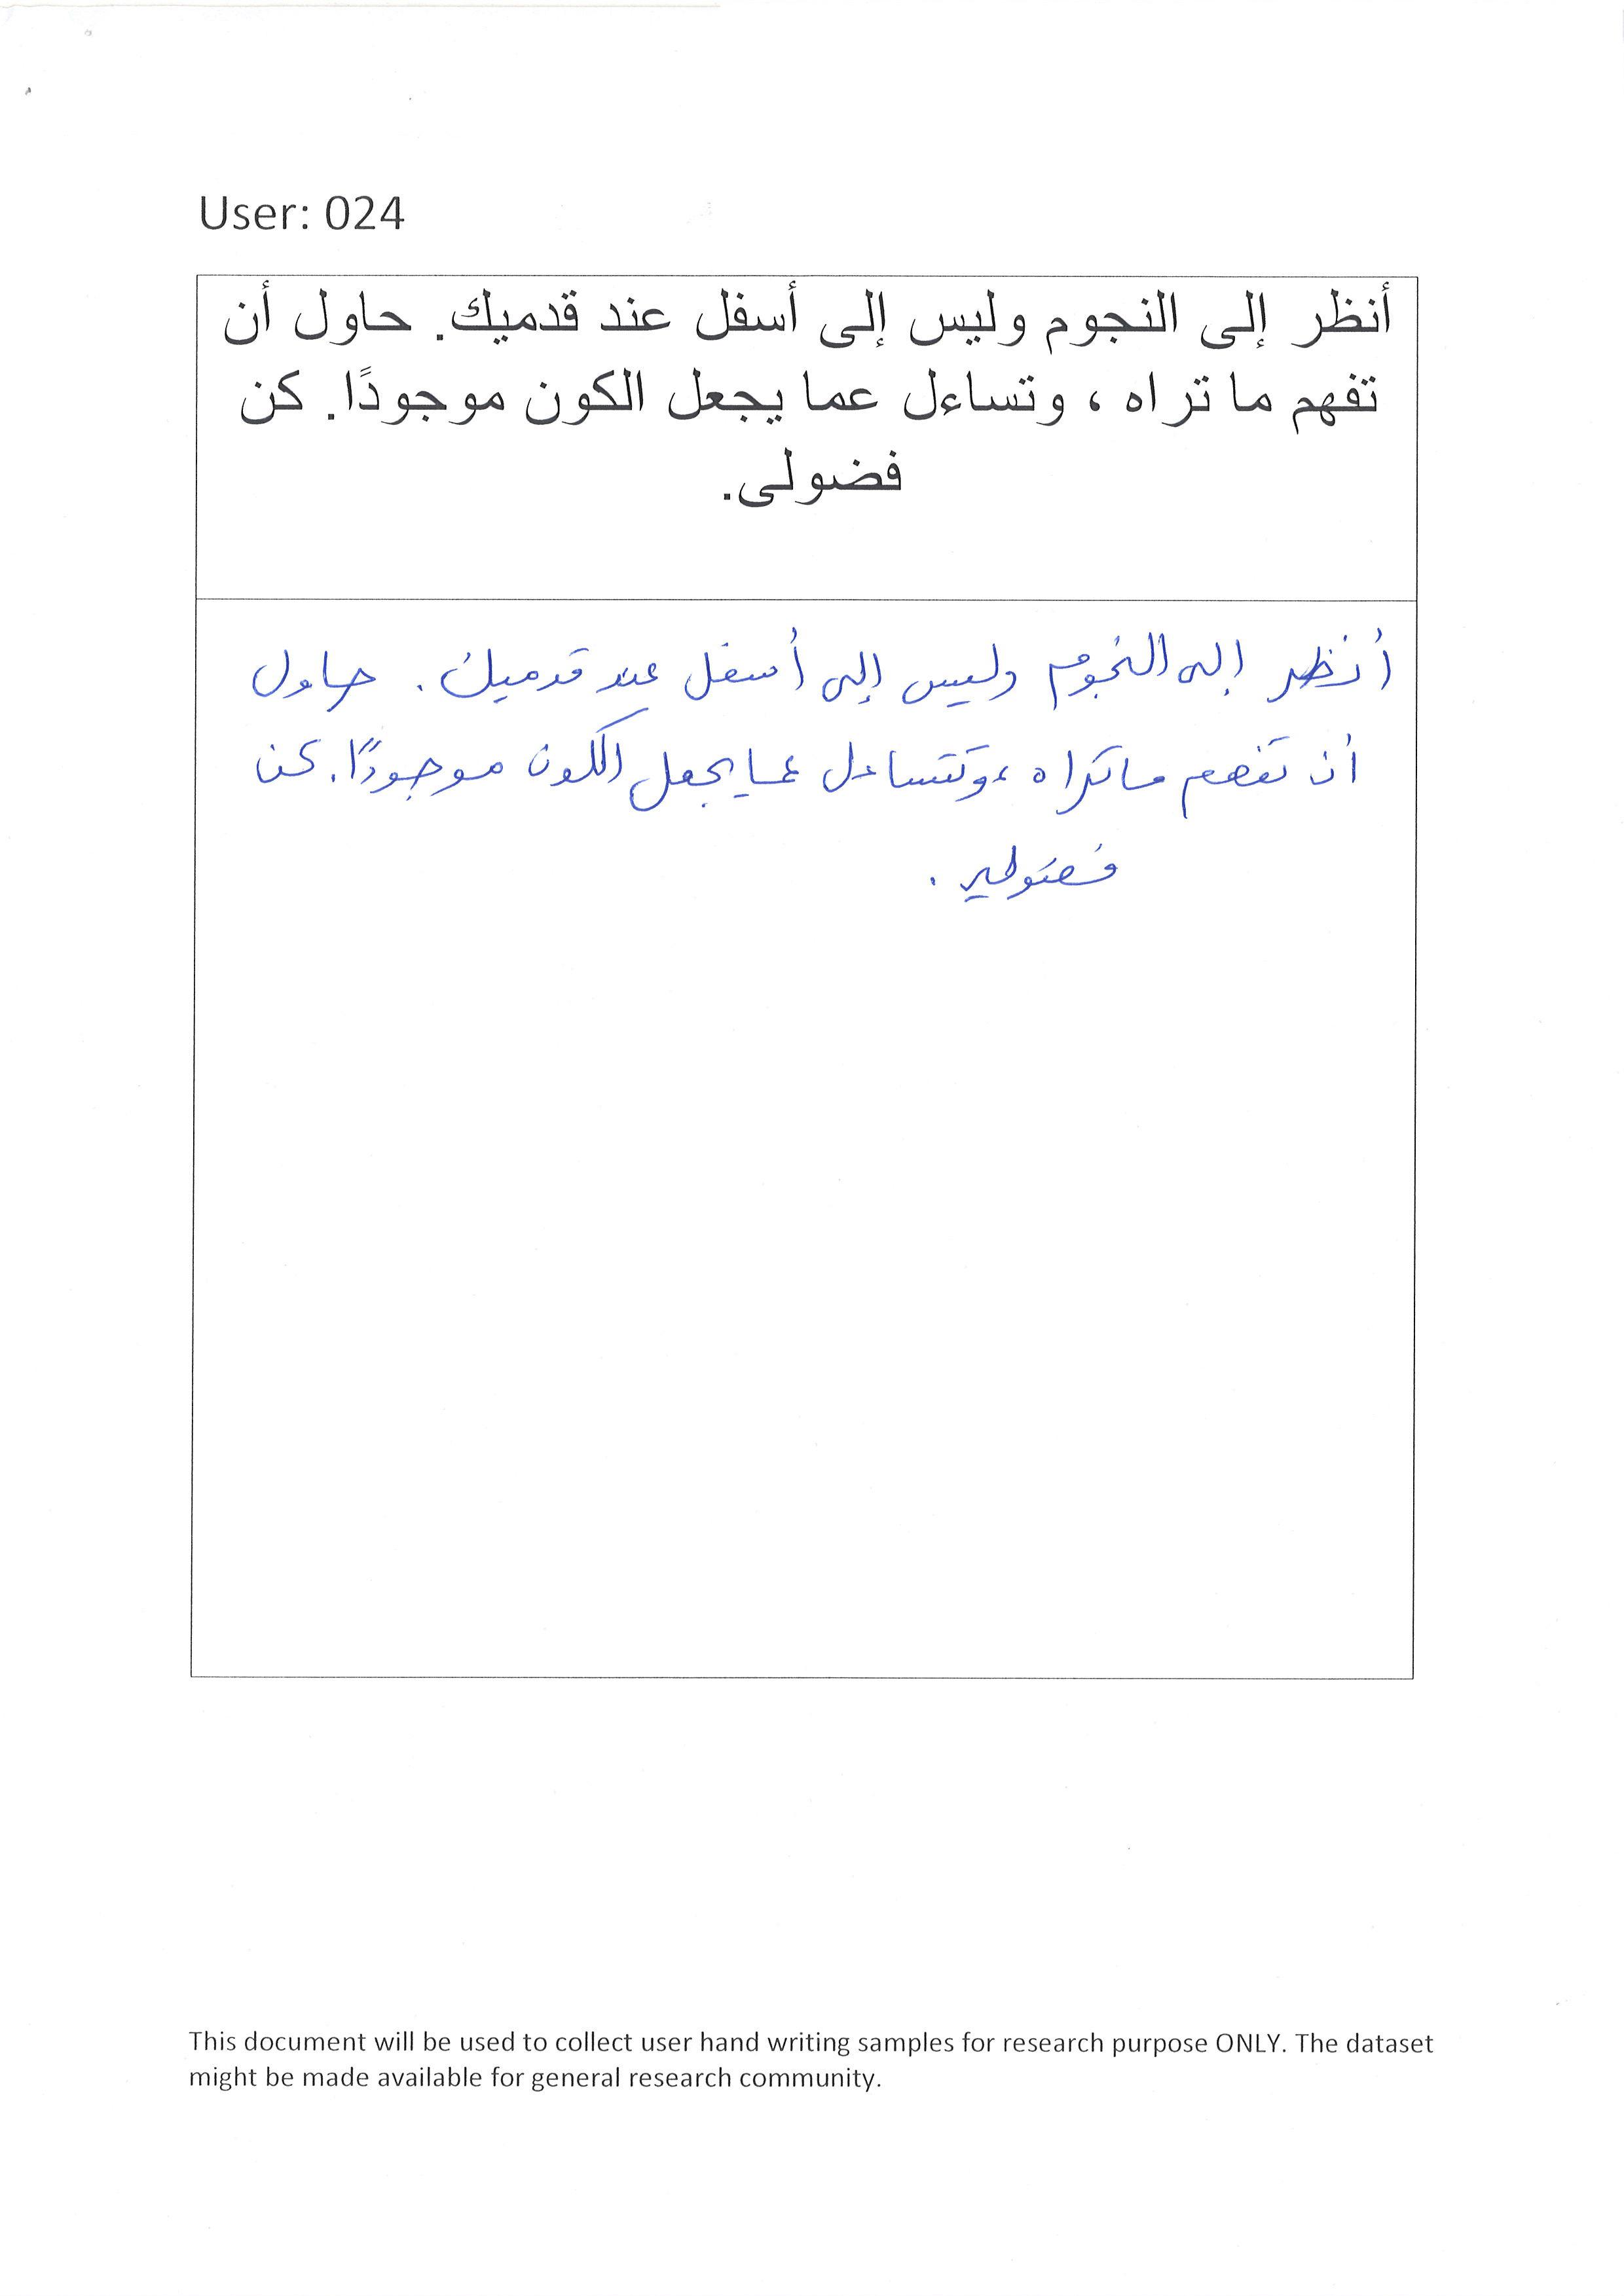 User: 024
أنظر إلى النجوم وليس إلى أسفل عند قدميك. حاول أن
تفهم ما تراه ، وتساءل عما يجعل الكون موجودًا. كن
فضولى.
أنظر إلى النجوم وليس إلى أسفل عند قدميك. حاول
أن تفهم ما تراه ، وتتساءل عما يجعل الكون موجودًا. كن
فضولي.
This document will be used to collect user hand writing samples for research purpose ONLY. The dataset
might be made available for general research community.